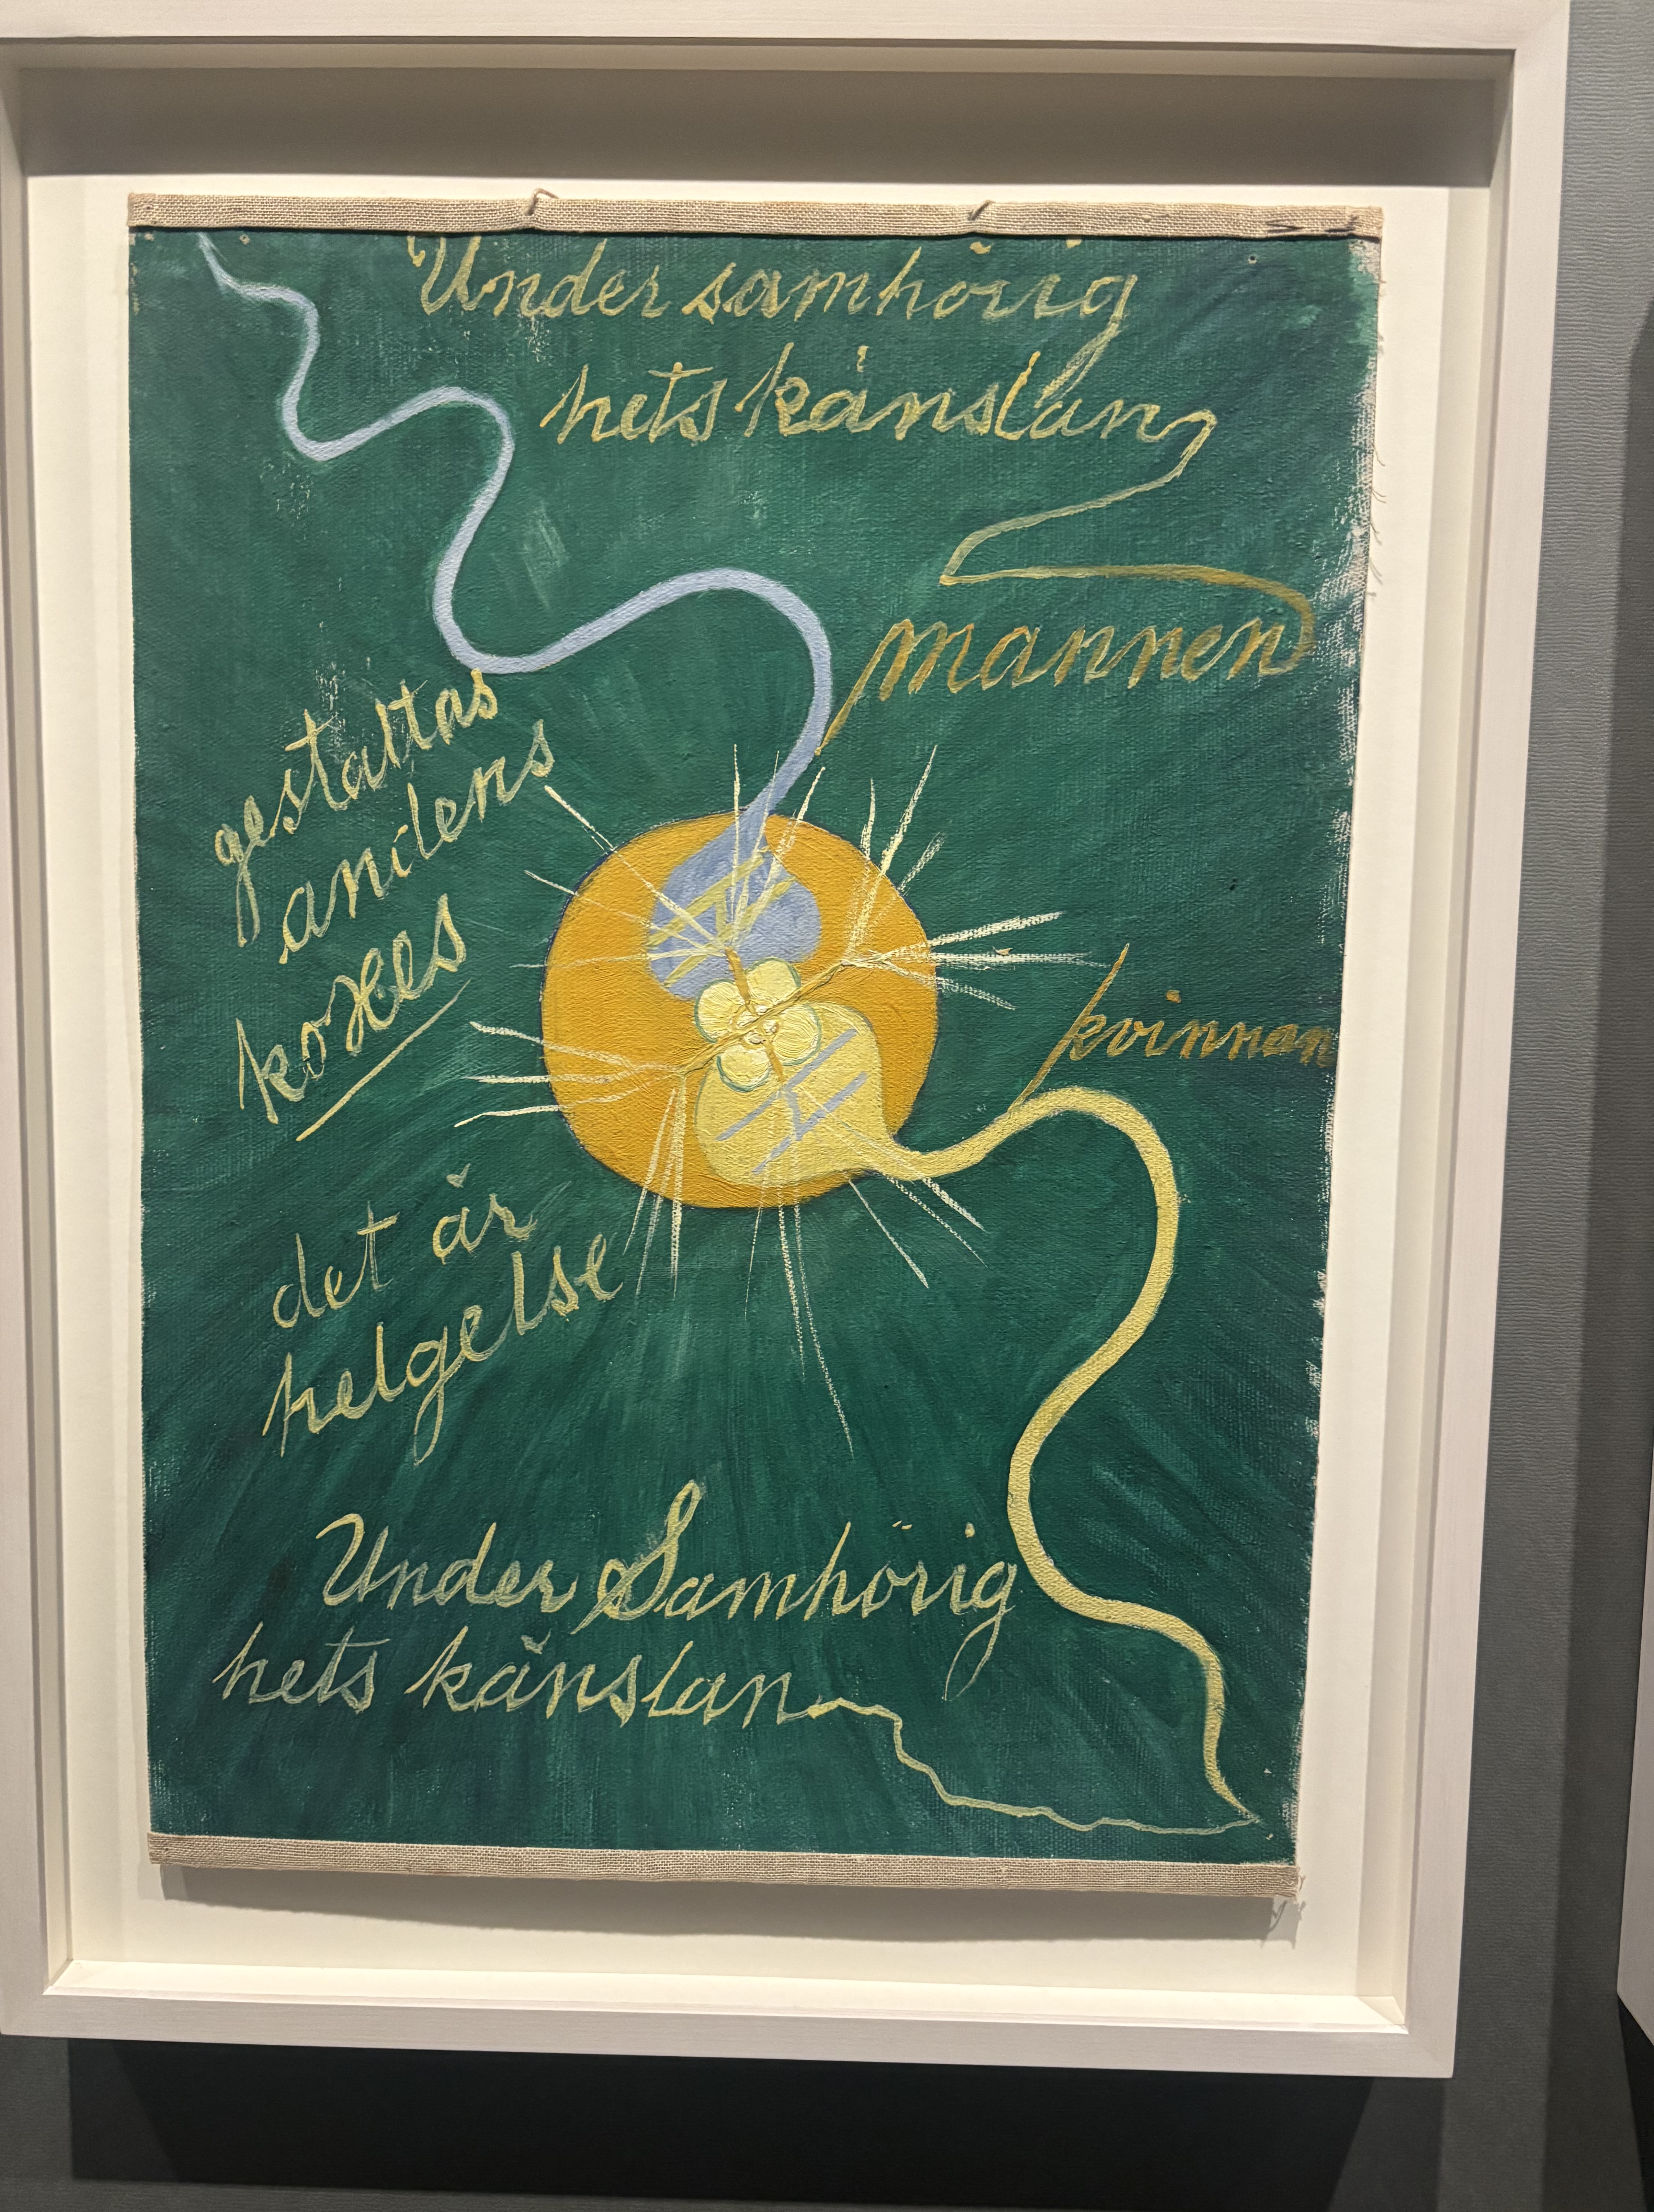 Under samhörig
hets känslan
mannen
gestaltas
anilens
kvinnan
det är
helgelse
Under Samhörig
hets känslan